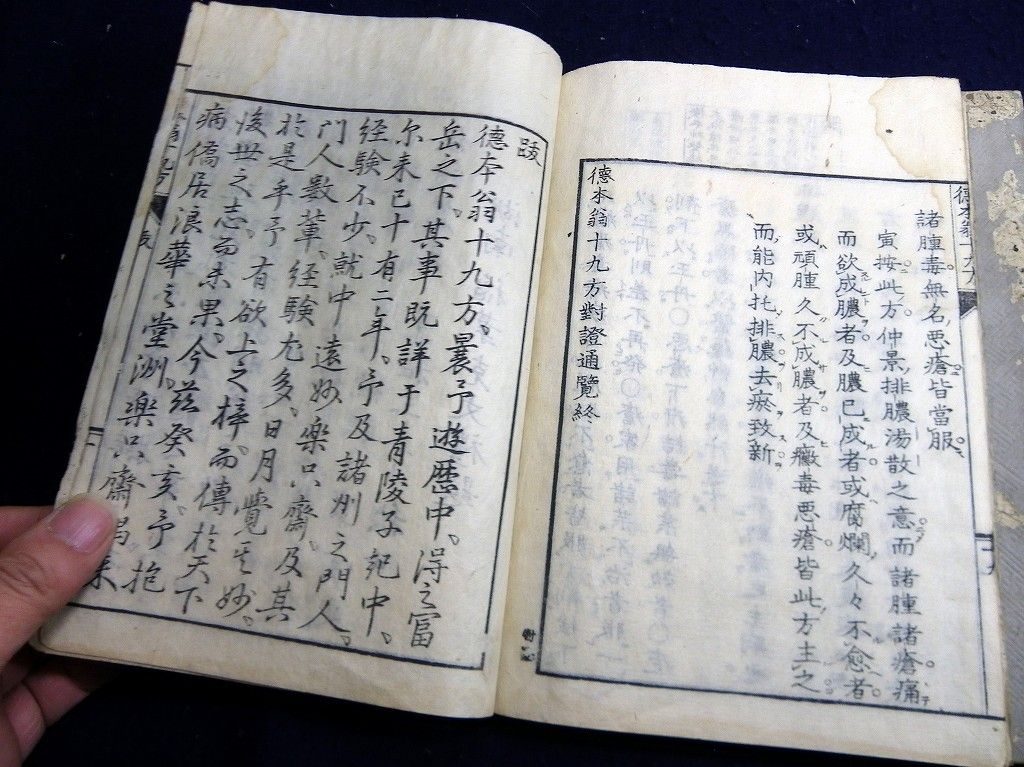 諸腫毒無名悪瘡皆當服
寅按此方仲景排膿湯散之意而諸腫諸瘡痛
而欲成膿者及膿已成者或腐爛久々不愈者
或頑腫久不成膿者及黴毒悪瘡皆此方主之
而能内托排膿去瘀致新
德本翁十九方對證通覧終
跋
德本翁十九方曩予遊歴中得之富
岳之下其事既詳于青陵子紀中
尓来已十有二年予及諸州之門人
経験不少就中遠妙楽只齋及其
門人數輩経験尤多日月覺其妙
於是乎予有欲上之梓而傳於天下
後世之志而未果今茲癸亥予抱
病僑居浪華之堂洲楽只齋